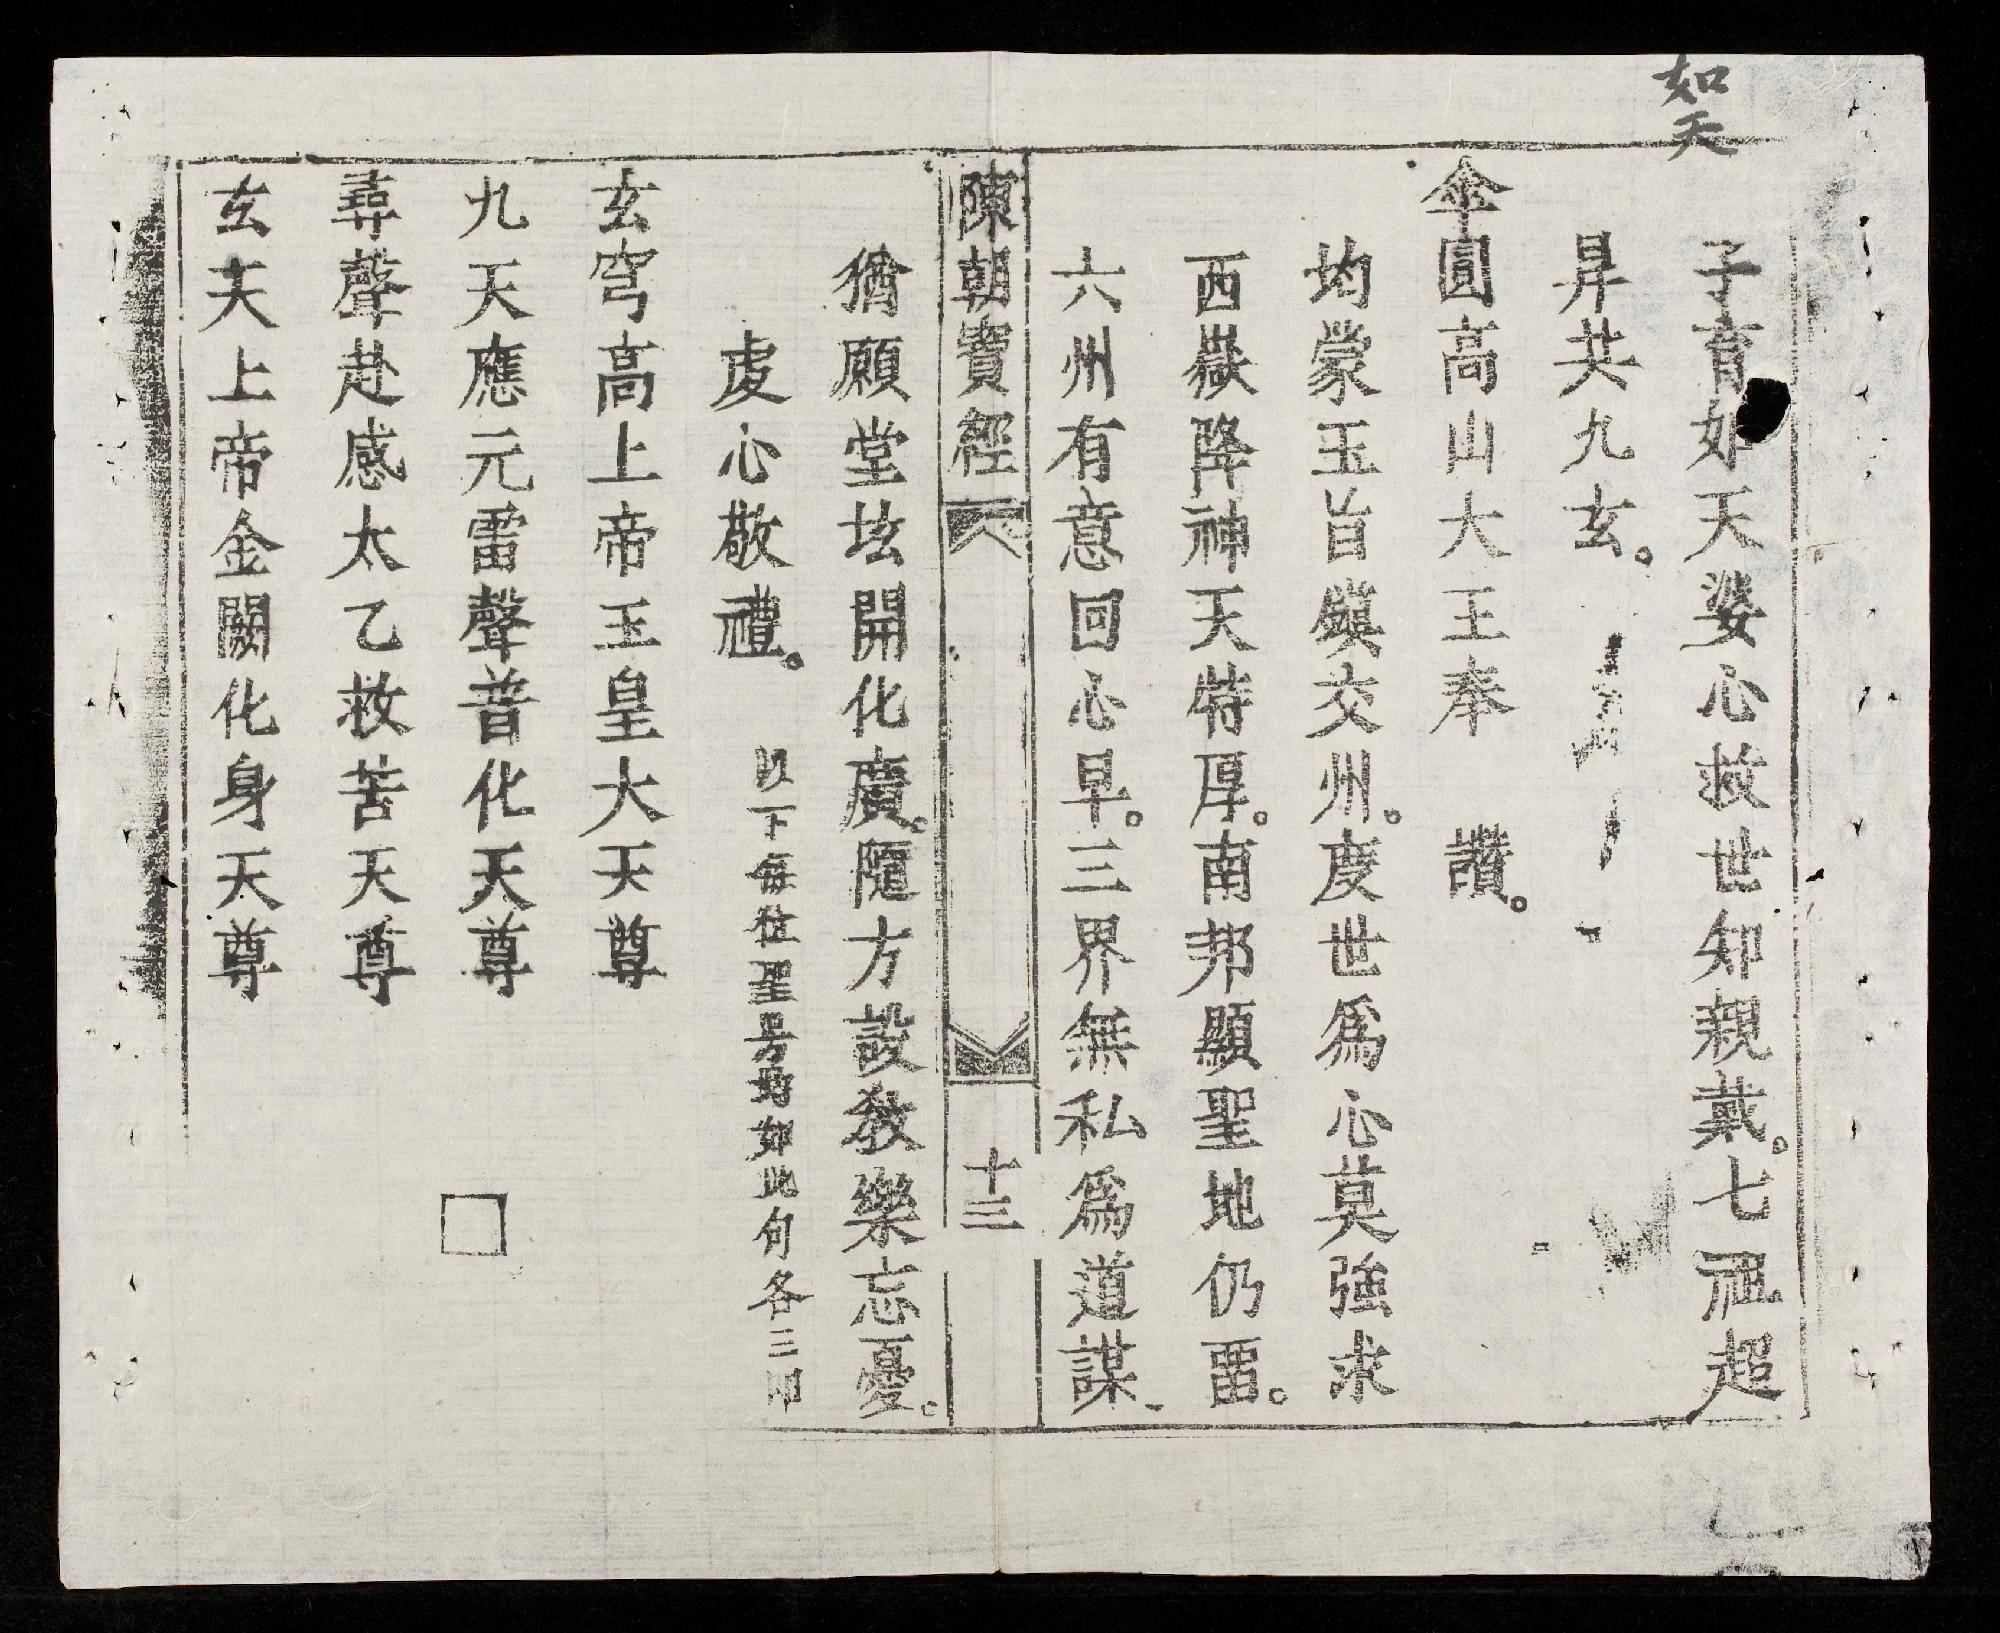 如天
子育如天婆心救世知親戴。七祖超
昇共九玄。
傘圓高山大王奉 讚。
均蒙玉旨鎮交州。度世爲心莫強求
西嶽降神天特厚。南邦顯聖地仍畱。
六州有意回心早。三界無私爲道謀、
陳朝寶經 十三
猶願堂坛開化廣。隨方設教樂忘憂。
虔心敬禮。 以下每位聖号均如此句各三叩
玄穹高上帝玉皇大天尊
九天應元雷聲普化天尊
尋聲赴感太乙救苦天尊
玄天上帝金闕化身天尊